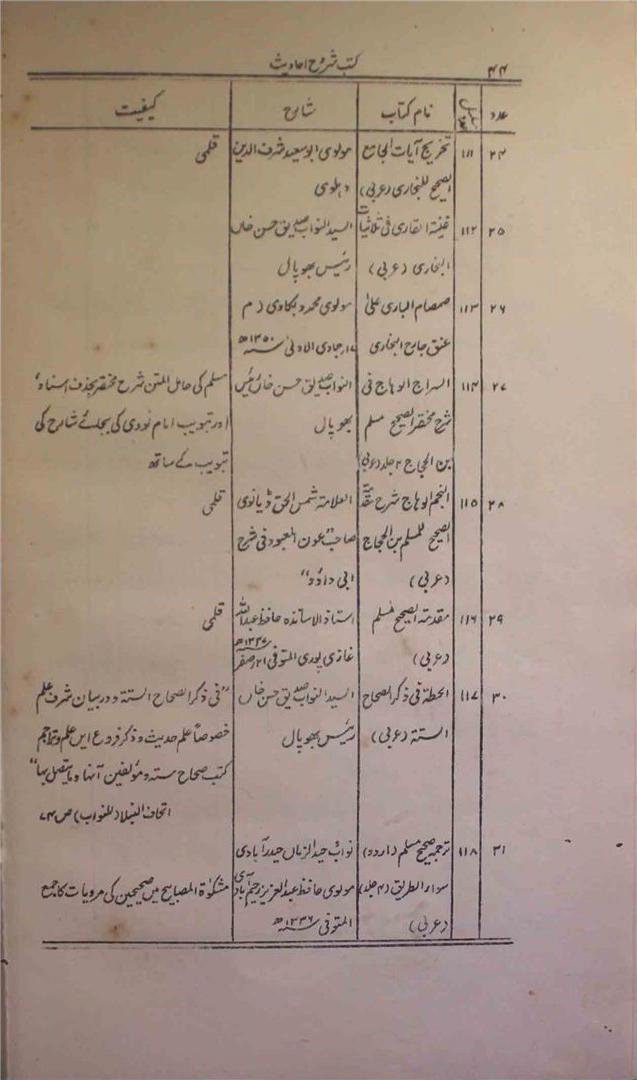 ۴۴ کتب شروح احادیث
عدد نام کتاب شارح کیفیت
۲۴ ۱۱۱ تخریج آیات الجامع مولوی ابو سعید شرف الدین قلمی
الصحیح للبخاری (عربی) دہلوی
۲۵ ۱۱۲ غنیۃ القاری فی ثلاثیات السید النواب صدیق حسن خاں
البخاری (عربی) رئیس بھوپال
۲۶ ۱۱۳ صمصام الباری علیٰ مولوی محمد (م
عنق جارح البخاری ۱۷ر جمادی الاولیٰ ۱۳۵۰ھ
۲۷ ۱۱۴ السراج الوہاج فی النواب صدیق حسن خاں رئیس مسلم کی حامل المتن شرح مختصر بحذف اسناد،
شرح مختصر الصحیح مسلم بھوپال اور تبویب امام نووی کی بجائے شارح کی
بن الحجاج ۲ جلد (عربی) تبویب کے ساتھ
۲۸ ۱۱۵ النجم الوہاج شرح مقدمۃ العلامہ شمس الحق ڈیانوی قلمی
الصحیح للمسلم بن الحجاج صاحب "عون المعبود فی شرح
(عربی) ابی داؤد"
۲۹ ۱۱۶ مقدمۃ الصحیح مسلم استاذ الاساتذہ حافظ عبداللہ قلمی
(عربی) غازی پوری المتوفی ۲۱ر صفر ۱۳۳۷ھ
۳۰ ۱۱۷ الحطۃ فی ذکر الصحاح السید النواب صدیق حسن خاں "فی ذکر الصحاح الستۃ و در بیان شرف علم
الستۃ (عربی) رئیس بھوپال خصوصاً علم حدیث و ذکر فروع ایں علم و تراجم
کتب صحاح ستہ و مؤلفین آنہا وما یتصل بہا"
اتحاف النبلاء (للنواب) ص ۷۴
۳۱ ۱۱۸ ترجمہ صحیح مسلم (اردو) نواب وحید الزماں حیدرآبادی
سواء الطریق (۴ جلد) مولوی حافظ عبدالعزیز رحیم آبادی مشکوٰۃ المصابیح میں صحیحین کی مرویات کا جمع
(عربی) المتوفی ۱۳۳۶ھ